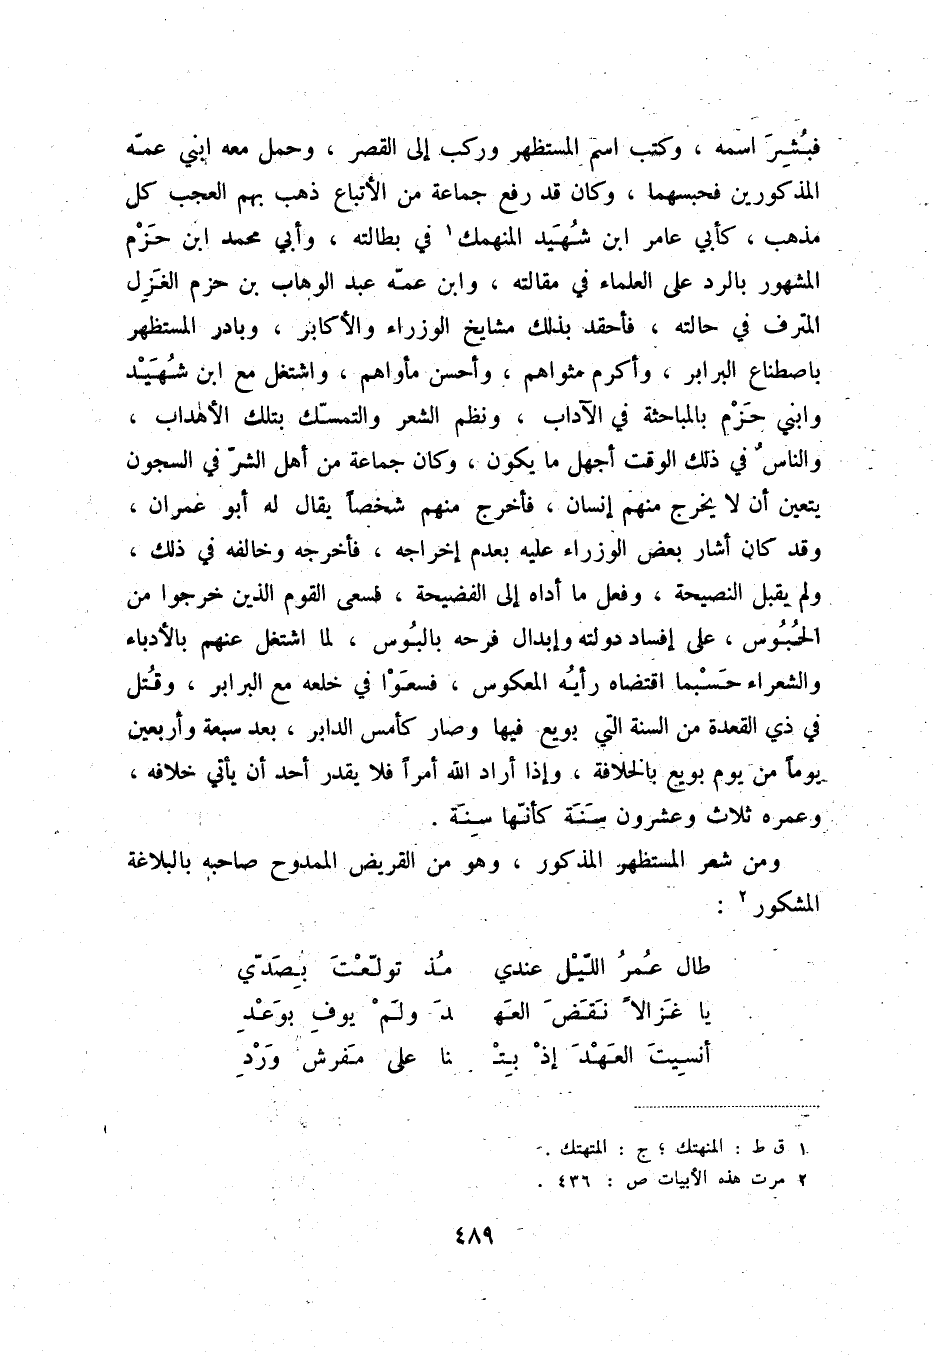 فبُشِرَ اسمه ، وكتب اسم المستظهر وركب إلى القصر ، وحمل معه إبني عمّه
المذكورين فحبسهما ، وكان قد رفع جماعة من الأتباع ذهب بهم العجب كل
مذهب ، كأبي عامر ابن شُهَيد المنهمك١ في بطالته ، وأبي محمد ابن حَزْم
المشهور بالرد على العلماء في مقالته ، وابن عمّه عبد الوهاب بن حزم الغَزِل
المترف في حالته ، فأحقد بذلك مشايخ الوزراء والأكابر ، وبادر المستظهر
باصطناع البرابر ، وأكرم مثواهم ، وأحسن مأواهم ، واشتغل مع ابن شُهَيْد
وابني حَزْم بالمباحثة في الآداب ، ونظم الشعر والتمسّك بتلك الأهداب ،
والناسُ في ذلك الوقت أجهل ما يكون ، وكان جماعة من أهل الشرّ في السجون
يتعين أن لا يخرج منهم إنسان ، فأخرج منهم شخصاً يقال له أبو عمران ،
وقد كان أشار بعض الوزراء عليه بعدم إخراجه ، فأخرجه وخالفه في ذلك ،
ولم يقبل النصيحة ، وفعل ما أداه إلى الفضيحة ، فسعى القوم الذين خرجوا من
الحُبُوس ، على إفساد دولته وإبدال فرحه بالبُوس ، لما اشتغل عنهم بالأدباء
والشعراء حَسْبما اقتضاه رأيُه المعكوس ، فسعَوْا في خلعه مع البرابر ، وقُتل
في ذي القعدة من السنة التي بويع فيها وصار كأمس الدابر ، بعد سبعة وأربعين
يوماً من يوم بويع بالخلافة ، وإذا أراد الله أمراً فلا يقدر أحد أن يأتي خلافه ،
وعمره ثلاث وعشرون سَنَة كأنّها سِنَة .
ومن شعر المستظهر المذكور ، وهو من القريض الممدوح صاحبه بالبلاغة
المشكور٢ :
طال عُمرُ اللّيْل عندي مُذ تولّعْتَ بِصَدّي
يا غَزالاً نَقَضَ العَهـ ـدَ ولَمْ يوفِ بوَعْدِ
أنسِيتَ العَهْدَ إذْ بِتْـ ـنا على مَفرش وَرْدِ
١ ق ط : المنهتك ؛ ج : المتهتك .
٢ مرت هذه الأبيات ص : ٤٣٦ .
٤٨٩